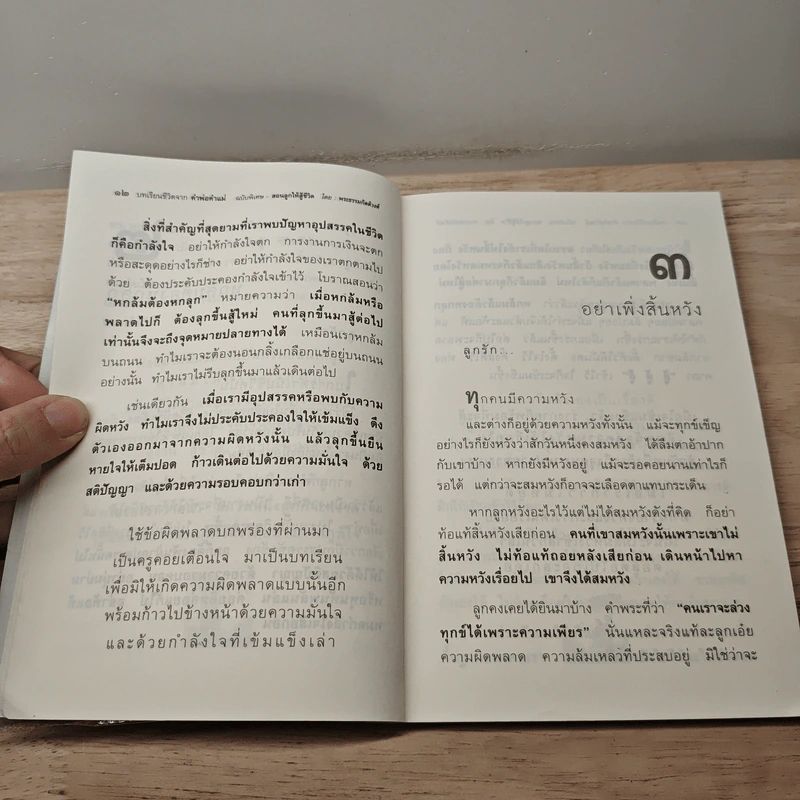 ๑๒ บทเรียนชีวิตจาก คำพ่อคำแม่ ฉบับพิเศษ - สอนลูกให้สู้ชีวิต โดย : พระธรรมกิตติวงศ์
สิ่งที่สำคัญที่สุดยามที่เราพบปัญหาอุปสรรคในชีวิต
ก็คือกำลังใจ อย่าให้กำลังใจตก การงานการเงินจะตก
หรือสะดุดอย่างไรก็ช่าง อย่าให้กำลังใจของเราตกตามไป
ด้วย ต้องประคับประคองกำลังใจเข้าไว้ โบราณสอนว่า
“หกล้มต้องหกลุก” หมายความว่า เมื่อหกล้มหรือ
พลาดไปก็ ต้องลุกขึ้นสู้ใหม่ คนที่ลุกขึ้นมาสู้ต่อไป
เท่านั้นจึงจะถึงจุดหมายปลายทางได้ เหมือนเราหกล้ม
บนถนน ทำไมเราจะต้องนอนกลิ้งเกลือกแช่อยู่บนถนน
อย่างนั้น ทำไมเราไม่รีบลุกขึ้นมาแล้วเดินต่อไป
เช่นเดียวกัน เมื่อเรามีอุปสรรคหรือพบกับความ
ผิดหวัง ทำไมเราจึงไม่ประคับประคองใจให้เข้มแข็ง ดึง
ตัวเองออกมาจากความผิดหวังนั้น แล้วลุกขึ้นยืน
หายใจให้เต็มปอด ก้าวเดินต่อไปด้วยความมั่นใจ ด้วย
สติปัญญา และด้วยความรอบคอบกว่าเก่า
ใช้ข้อผิดพลาดบกพร่องที่ผ่านมา
เป็นครูคอยเตือนใจ มาเป็นบทเรียน
เพื่อมิให้เกิดความผิดพลาดแบบนั้นอีก
พร้อมก้าวไปข้างหน้าด้วยความมั่นใจ
และด้วยกำลังใจที่เข้มแข็งเล่า
๓
อย่าเพิ่งสิ้นหวัง
ลูกรัก...
ทุกคนมีความหวัง
และต่างก็อยู่ด้วยความหวังทั้งนั้น แม้จะทุกข์เข็ญ
อย่างไรก็ยังหวังว่าสักวันหนึ่งคงสมหวัง ได้ลืมตาอ้าปาก
กับเขาบ้าง หากยังมีหวังอยู่ แม้จะรอคอยนานเท่าไรก็
รอได้ แต่กว่าจะสมหวังก็อาจจะเลือดตาแทบกระเด็น
หากลูกหวังอะไรไว้แต่ไม่ได้สมหวังดังที่คิด ก็อย่า
ท้อแท้สิ้นหวังเสียก่อน คนที่เขาสมหวังนั้นเพราะเขาไม่
สิ้นหวัง ไม่ท้อแท้ถอยหลังเสียก่อน เดินหน้าไปหา
ความหวังเรื่อยไป เขาจึงได้สมหวัง
ลูกคงเคยได้ยินมาบ้าง คำพระที่ว่า “คนเราจะล่วง
ทุกข์ได้เพราะความเพียร” นั่นแหละจริงแท้ละลูกเอ๋ย
ความผิดพลาด ความล้มเหลวที่ประสบอยู่ มิใช่ว่าจะ